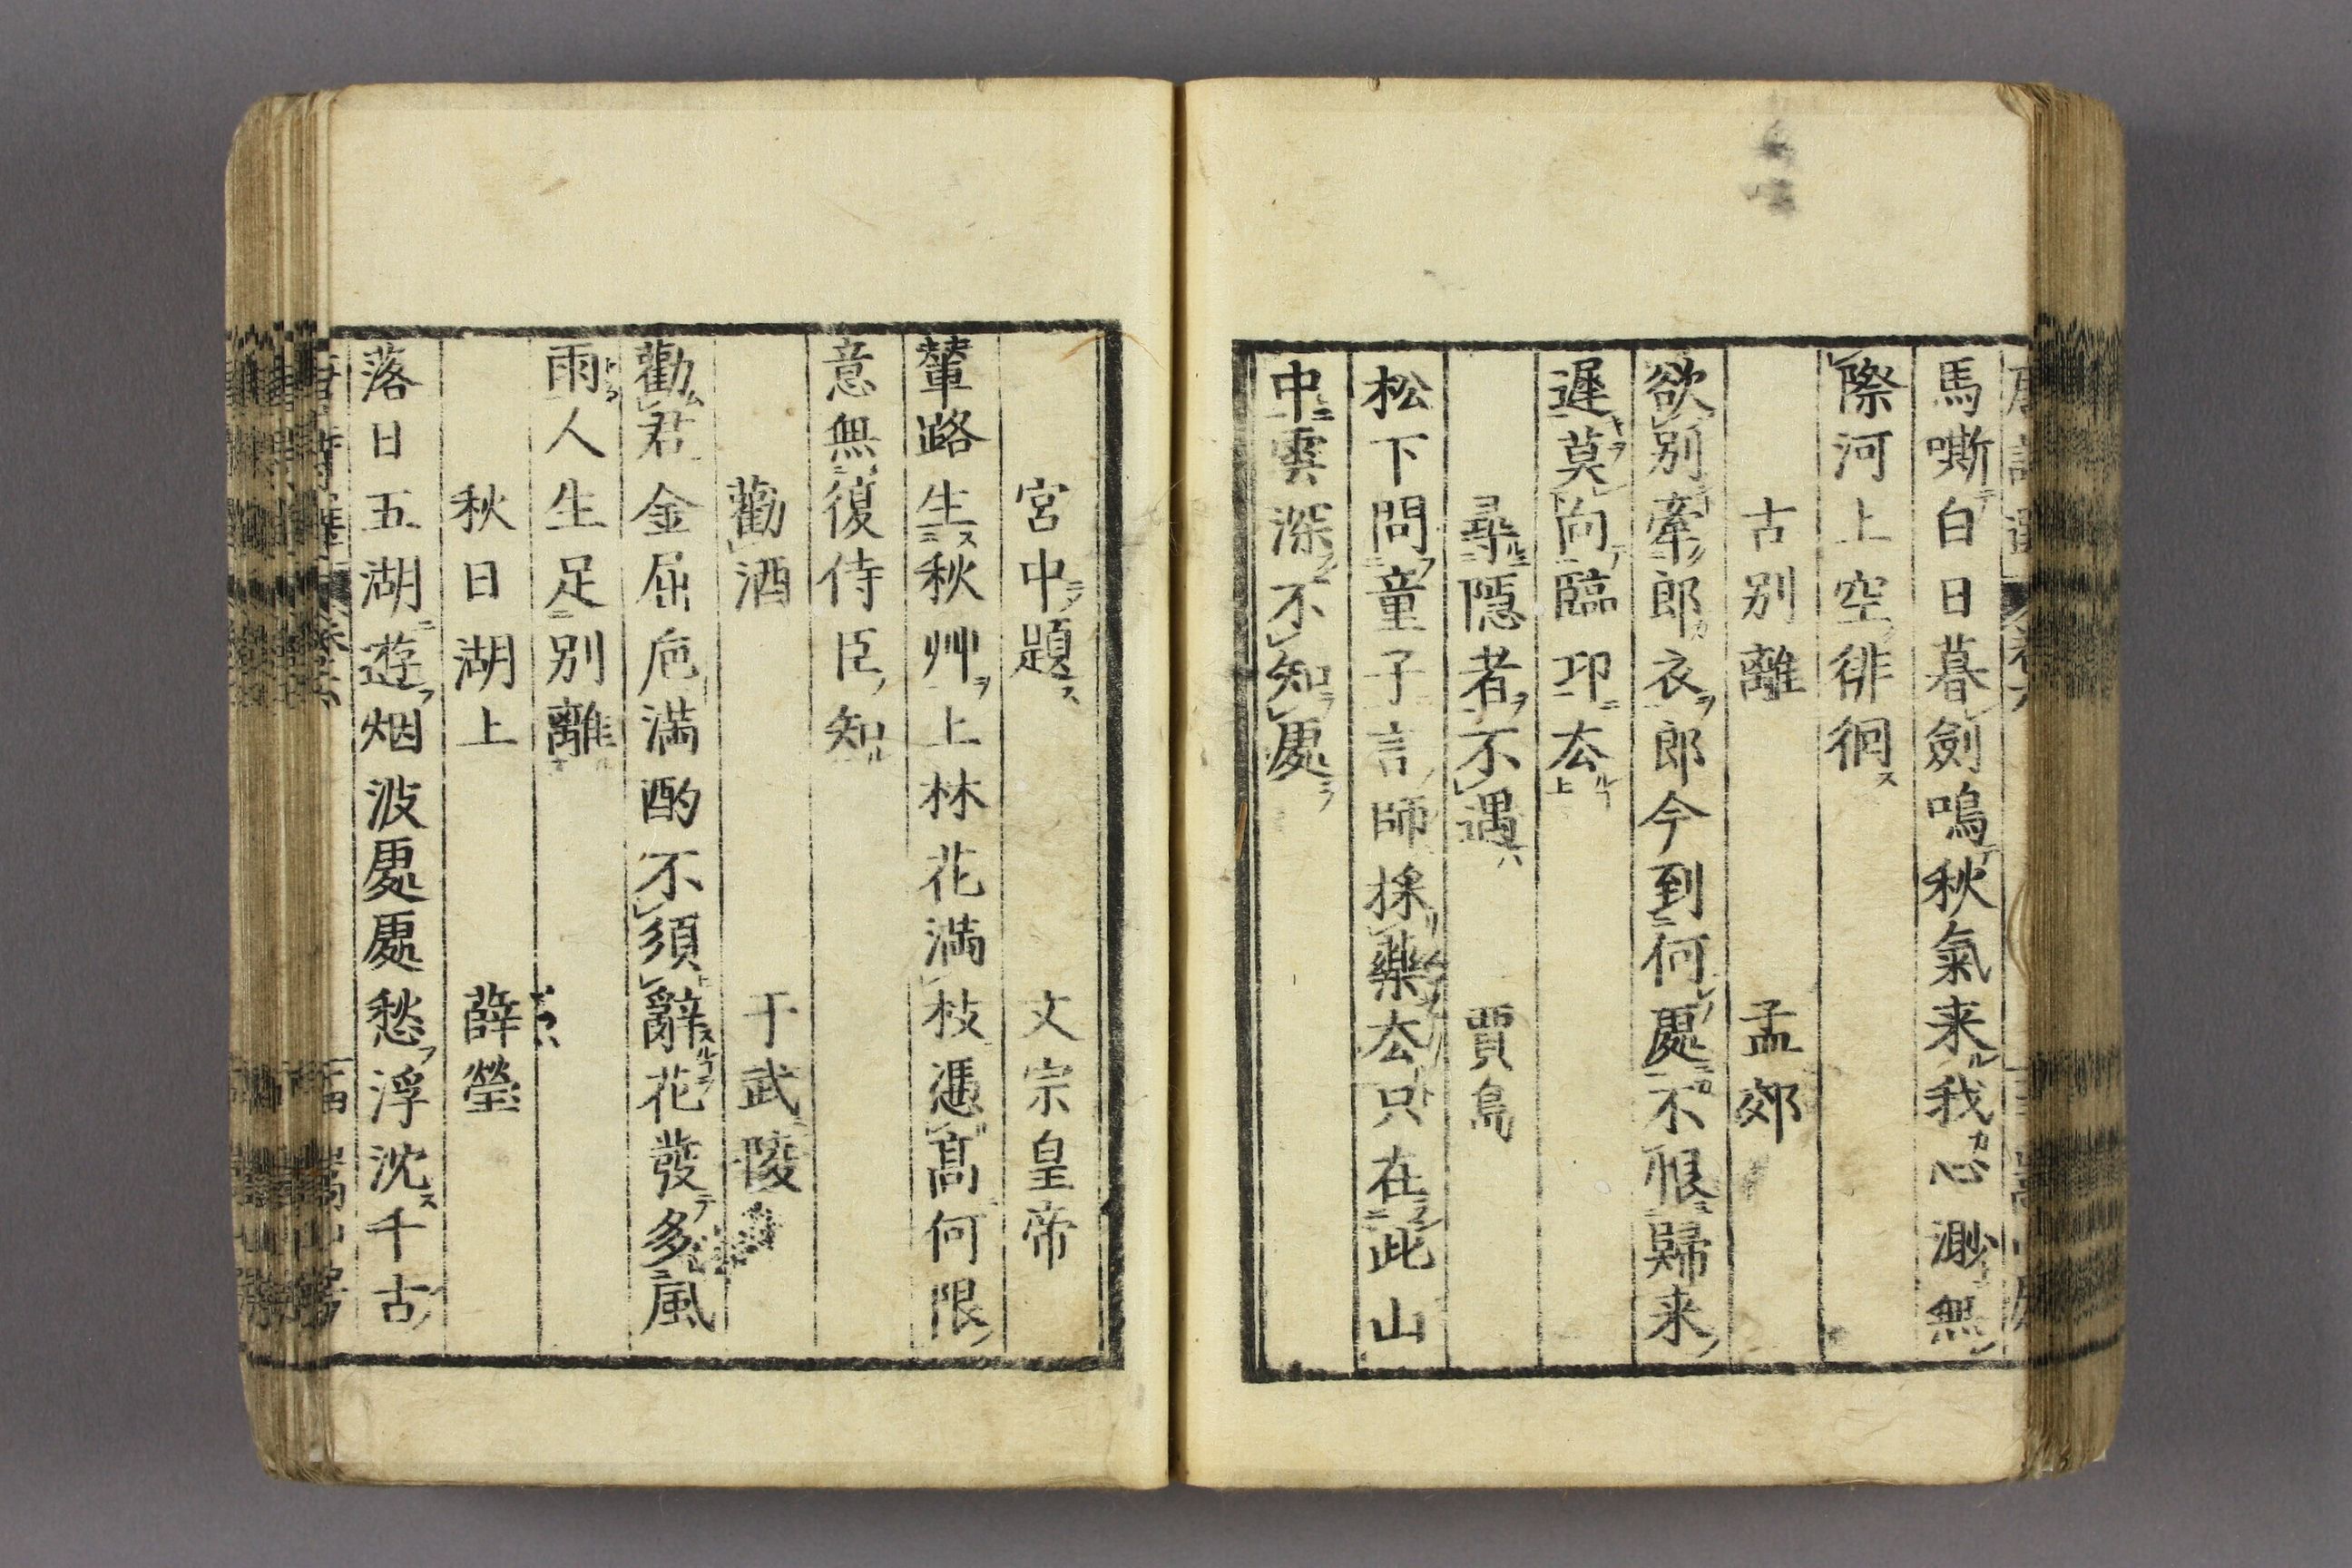 馬嘶白日暮劍鳴秋氣来我心渺無
際河上空徘徊
古別離 孟郊
欲別牽郎衣郎今到何處不恨歸来
遲莫向臨邛厺
尋隠者不遇 賈島
松下問童子言師採藥厺只在此山
中雲深不知處
宮中題 文宗皇帝
輦路生秋艸上林花満枝憑髙何限
意無復侍臣知
勸酒 于武陵
勸君金屈巵満酌不須辭花發多風
雨人生足別離
秋日湖上 薛瑩
落日五湖遊烟波處處愁浮沈千古